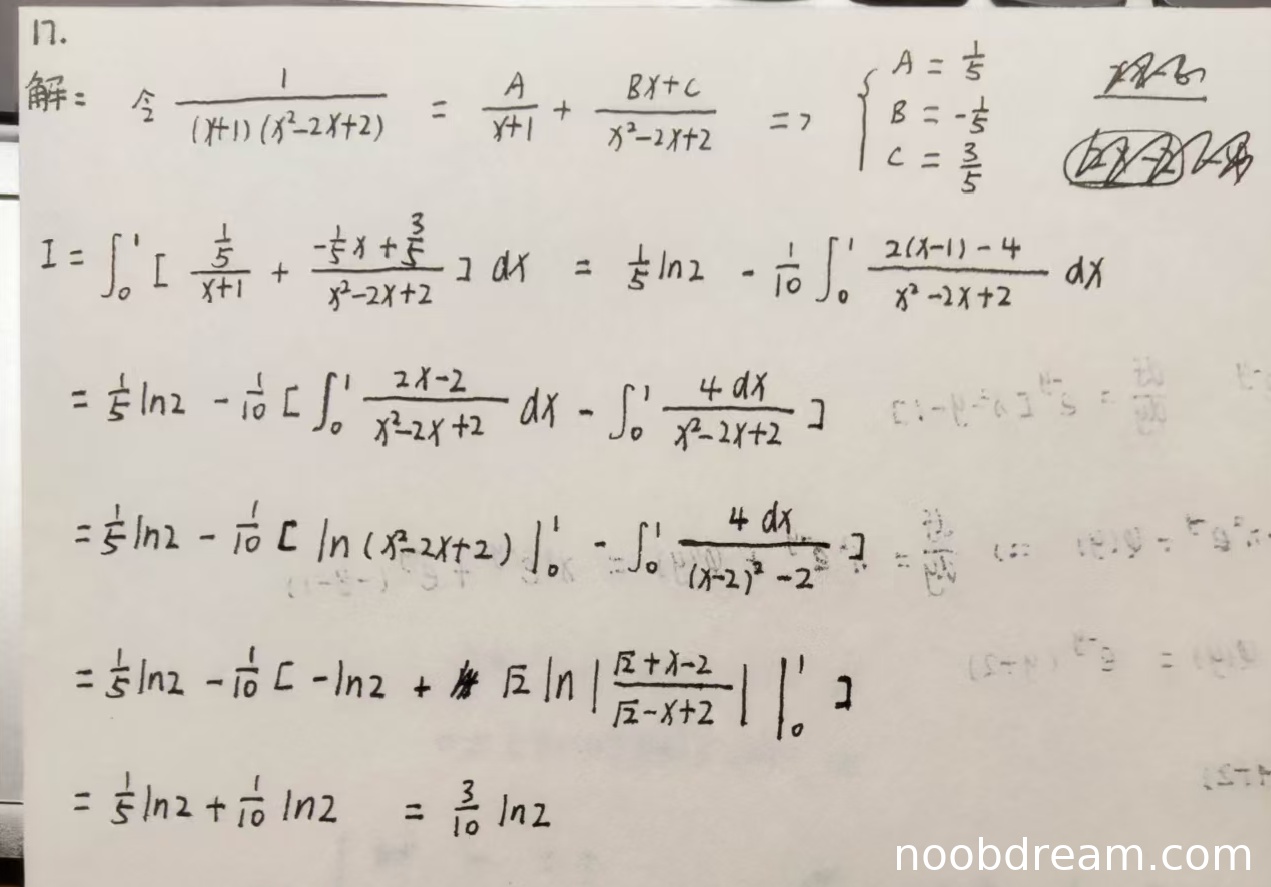 17.
解: 令 1/((x+1)(x²-2x+2)) = A/(x+1) + (Bx+C)/(x²-2x+2) => { A = 1/5
B = -1/5
C = 3/5
I = ∫₀¹ [ (1/5)/(x+1) + (-1/5x + 3/5)/(x²-2x+2) ] dx = 1/5 ln2 - 1/10 ∫₀¹ (2(x-1) - 4)/(x²-2x+2) dx
= 1/5 ln2 - 1/10 [ ∫₀¹ (2x-2)/(x²-2x+2) dx - ∫₀¹ 4dx/(x²-2x+2) ]
= 1/5 ln2 - 1/10 [ ln(x²-2x+2) |₀¹ - ∫₀¹ 4dx/((x-2)²-2) ]
= 1/5 ln2 - 1/10 [ -ln2 + √2 ln| (√2+x-2)/(√2-x+2) | |₀¹ ]
= 1/5 ln2 + 1/10 ln2 = 3/10 ln2
noobdream.com